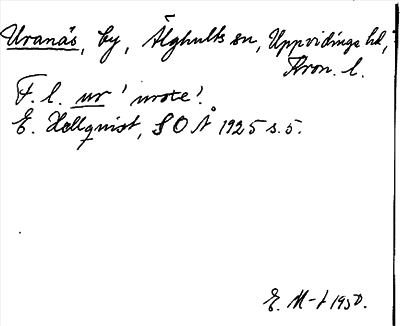 Uranäs, by, Älghults sn, Uppvidinge hd,
Kron. l.
F. l. ur 'urote'.
E. Hellquist, SOÅ 1925 s. 5.
E. M-t 1950.